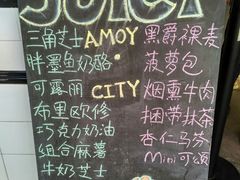 JUICY
三角芝士 AMOY 黑爵裸麦
胖墨鱼奶酪 · 菠萝包
可露丽 CITY 烟熏牛肉
布里欧修 捆带抹茶
巧克力奶油 杏仁马芬
组合麻薯 mini可颂
牛奶芝士